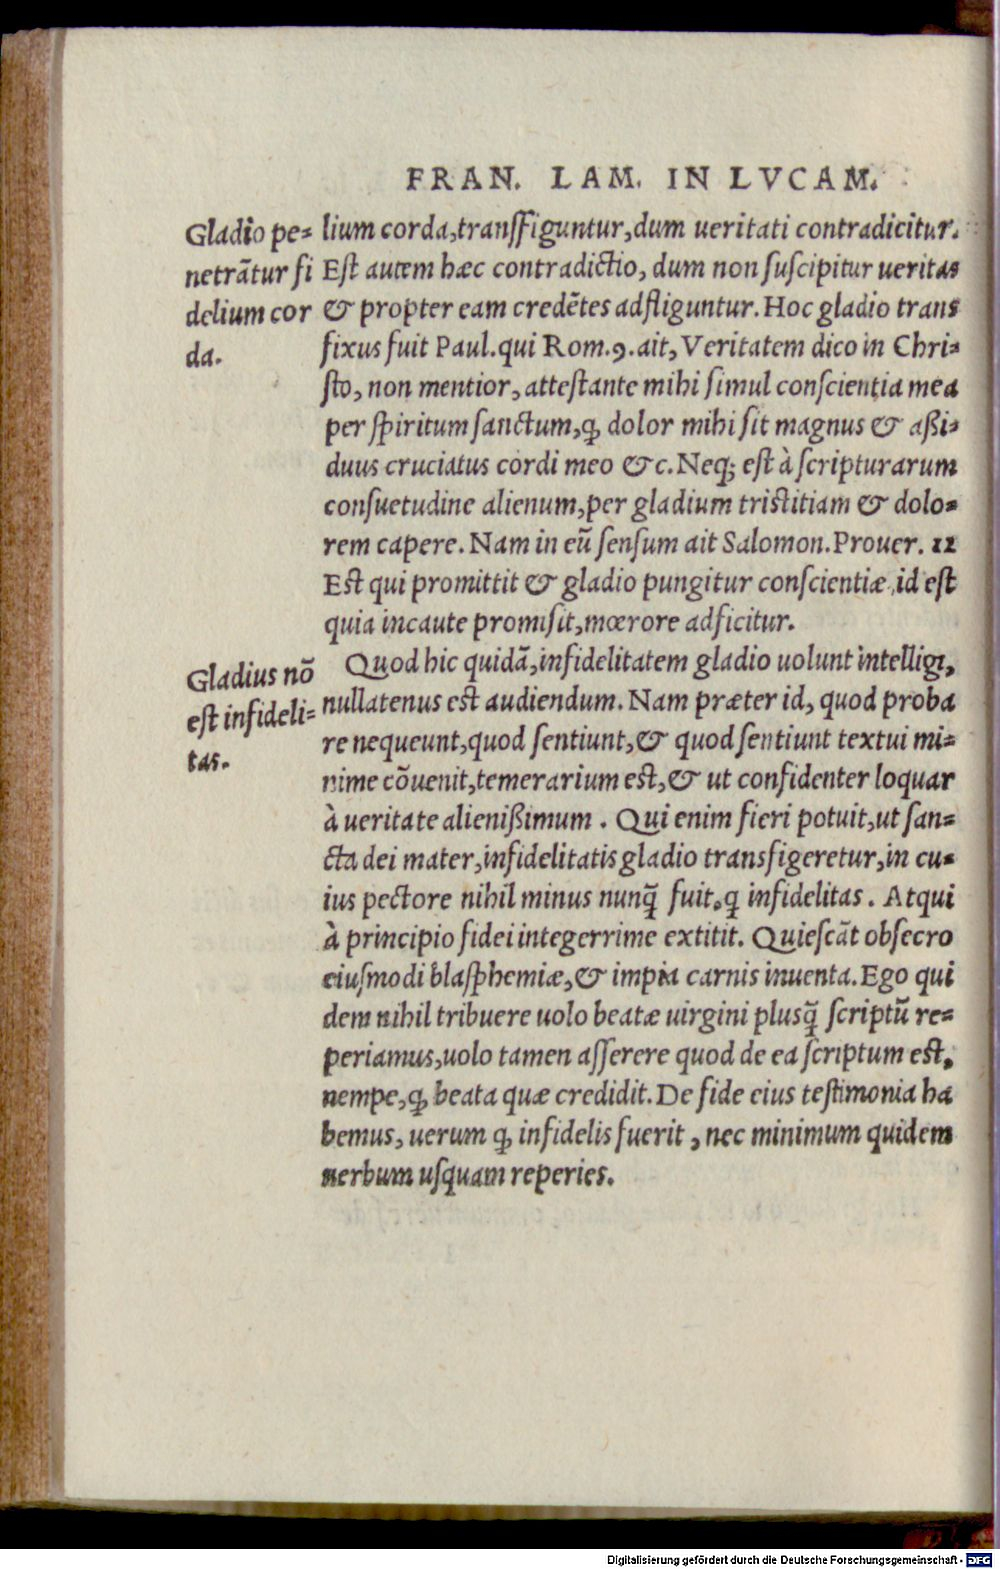 FRAN. LAM. IN LVCAM.
Gladio pe=
netrātur fi
delium cor
da.
lium corda,transffiguntur,dum ueritati contradicitur.
Est autem hæc contradictio, dum non suscipitur ueritas
& propter eam credētes adfliguntur. Hoc gladio trans
fixus fuit Paul.qui Rom.9.ait, Veritatem dico in Chri=
sto, non mentior, attestante mihi simul conscientia mea
per spiritum sanctum,ꝙ dolor mihi sit magnus & aßi=
duus cruciatus cordi meo &c. Neq; est à scripturarum
consuetudine alienum,per gladium tristitiam & dolo=
rem capere. Nam in eū sensum ait Salomon.Prouer. 12
Est qui promittit & gladio pungitur conscientiæ,id est
quia incaute promisit,mœrore adficitur.
Gladius nō
est infideli=
tas.
Quod hic quidā,infidelitatem gladio uolunt intelligi,
nullatenus est audiendum. Nam præter id, quod proba
re nequeunt,quod sentiunt,& quod sentiunt textui mi=
nime cōuenit,temerarium est,& ut confidenter loquar
à ueritate alienißimum . Qui enim fieri potuit,ut san=
cta dei mater,infidelitatis gladio transfigeretur,in cu=
ius pectore nihil minus nunq̃ fuit,q̃ infidelitas . Atqui
à principio fidei integerrime extitit. Quiescāt obsecro
eiusmodi blasphemiæ,& impia carnis inuenta. Ego qui
dem nihil tribuere uolo beatæ uirgini plusq̃ scriptū re=
periamus,uolo tamen asserere quod de ea scriptum est,
nempe,ꝙ beata quæ credidit. De fide eius testimonia ha
bemus, uerum ꝙ infidelis fuerit , nec minimum quidem
uerbum usquam reperies.
Digitalisierung gefördert durch die Deutsche Forschungsgemeinschaft - DFG